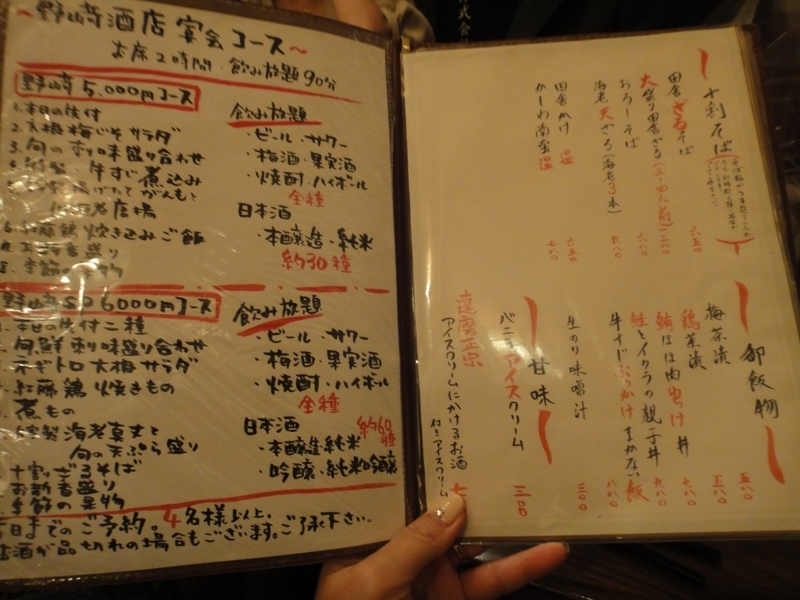 〜野崎酒店 宴会コース〜
お席2時間・飲み放題90分
野崎5,000円コース
1.本日の先付
2.大根梅じそサラダ
3.旬の刺し味盛り合わせ
牛すじ煮込み
揚げたてがんもと
鶏 炊き込みご飯
季節の果物
飲み放題
・ビール・サワー
・梅酒・果実酒
・焼酎・ハイボール
全種
日本酒
・本醸造・純米
約30種
野崎SP6000円コース
本日の先付二種
旬鮮刺し味盛り合わせ
ネギトロ大根サラダ
紅藤鶏焼きもの
煮もの
特製海老真丈と
旬の天ぷら盛り
十割ざるそば
お新香盛り
季節の果物
飲み放題
・ビール・サワー
・梅酒・果実酒
・焼酎・ハイボール
全種
日本酒 約60種
・本醸造・純米
・吟醸・純米吟醸
日までのご予約。4名様以上。
お酒が品切れの場合もございます。ご了承下さい。
十割そば
田舎ざるそば 六五〇
大盛り田舎ざる(三、四人前)
おろしそば 八八〇
海老天ざる(海老3本) 九八〇
田舎かけ 温 六五〇
かしわ南蛮 温 七八〇
御飯物
梅茶漬 五八〇
鶏茶漬 五八〇
鮪ほほ肉ゆっけ丼 七八〇
鮭とイクラの親子丼 九八〇
牛すじぶっかけまかない飯 八八〇
生のり味噌汁 三〇〇
甘味
バニラアイスクリーム 三〇〇
達磨正宗
アイスクリームにかけるお酒
付きアイスクリーム